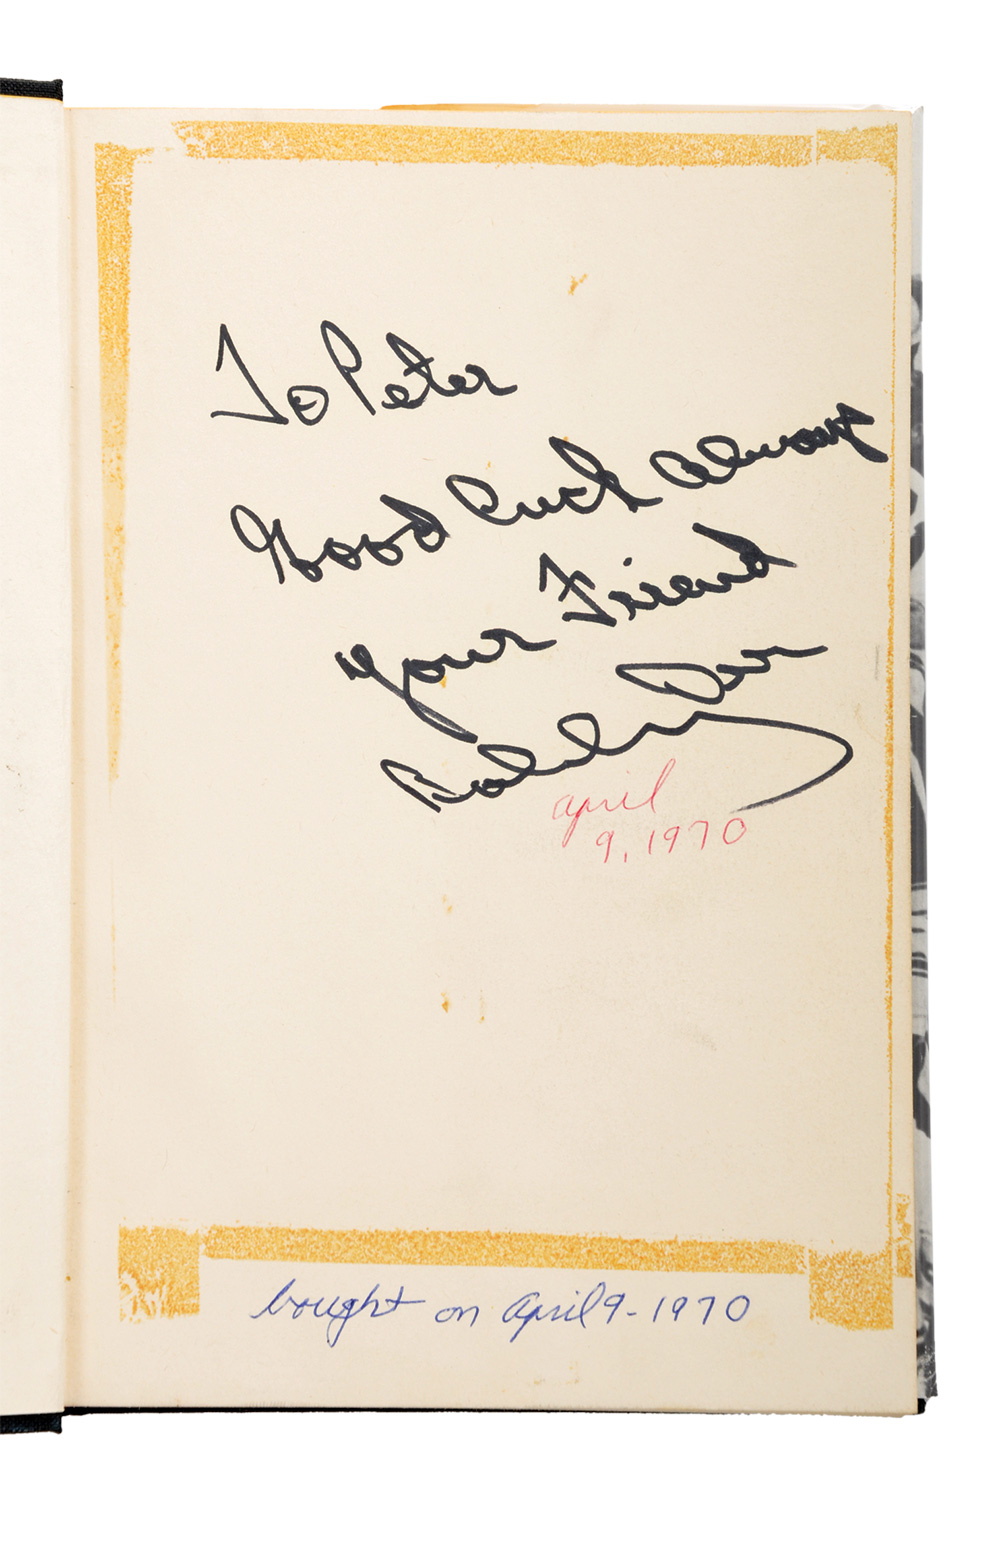 To Peter
Good Luck Always
Your Friend
Bobby Orr
april
9, 1970
bought on april 9-1970